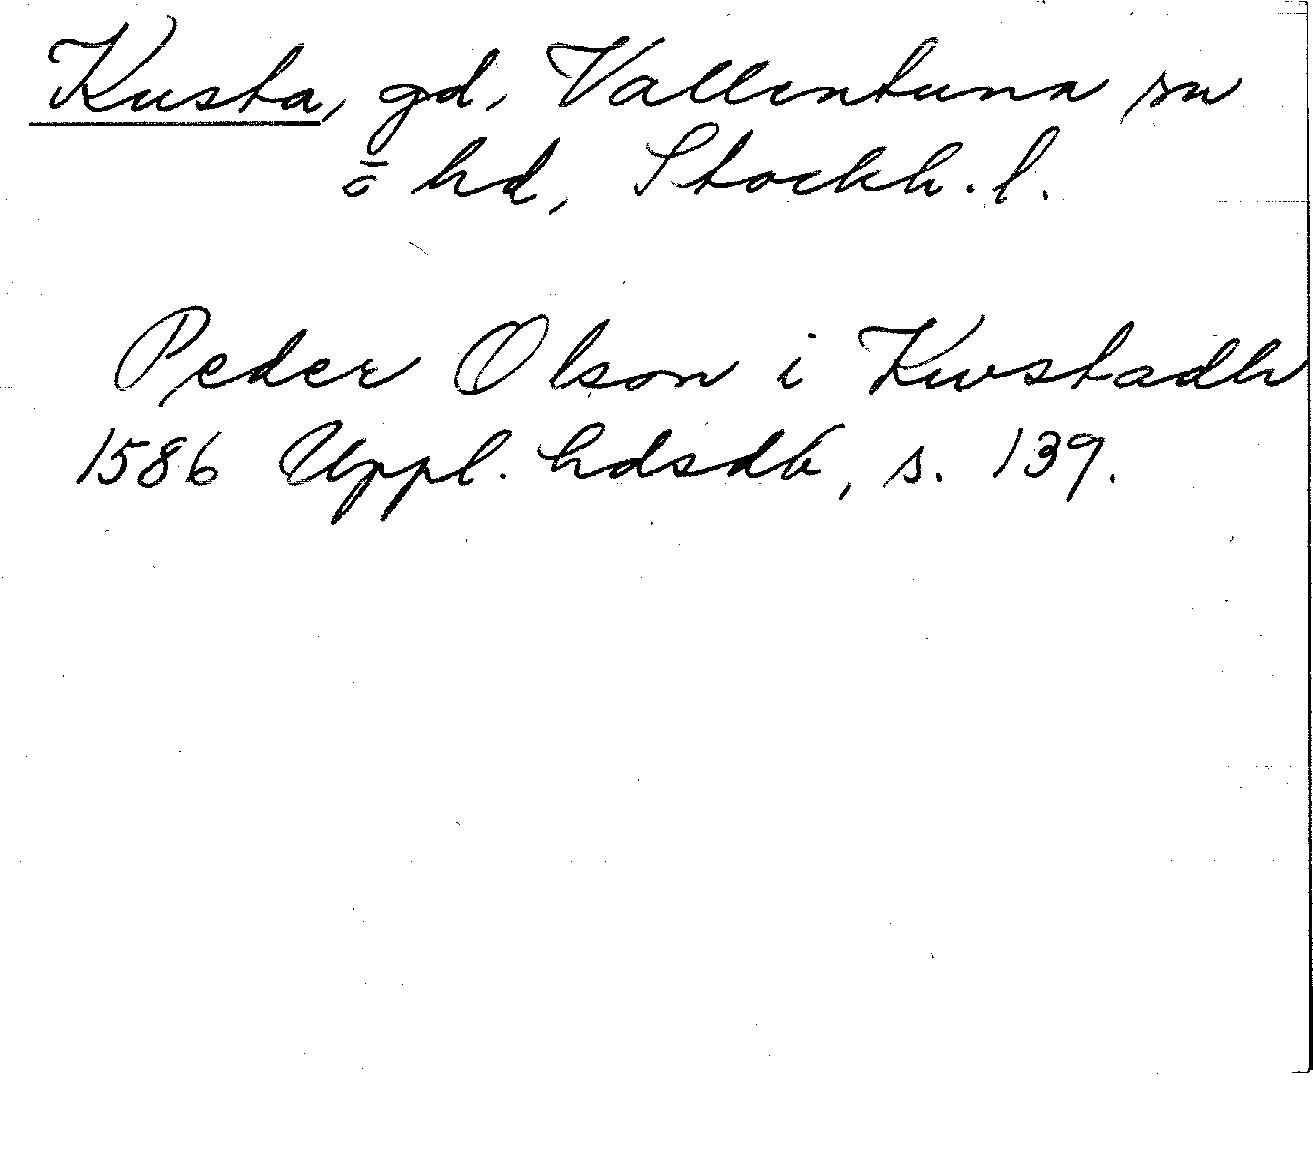 Kusta, gd, Vallentuna sn
o̅ hd, Stockh. l.
Peder Olson i Kwstadh
1586 Uppl. hdsdb, s. 139.